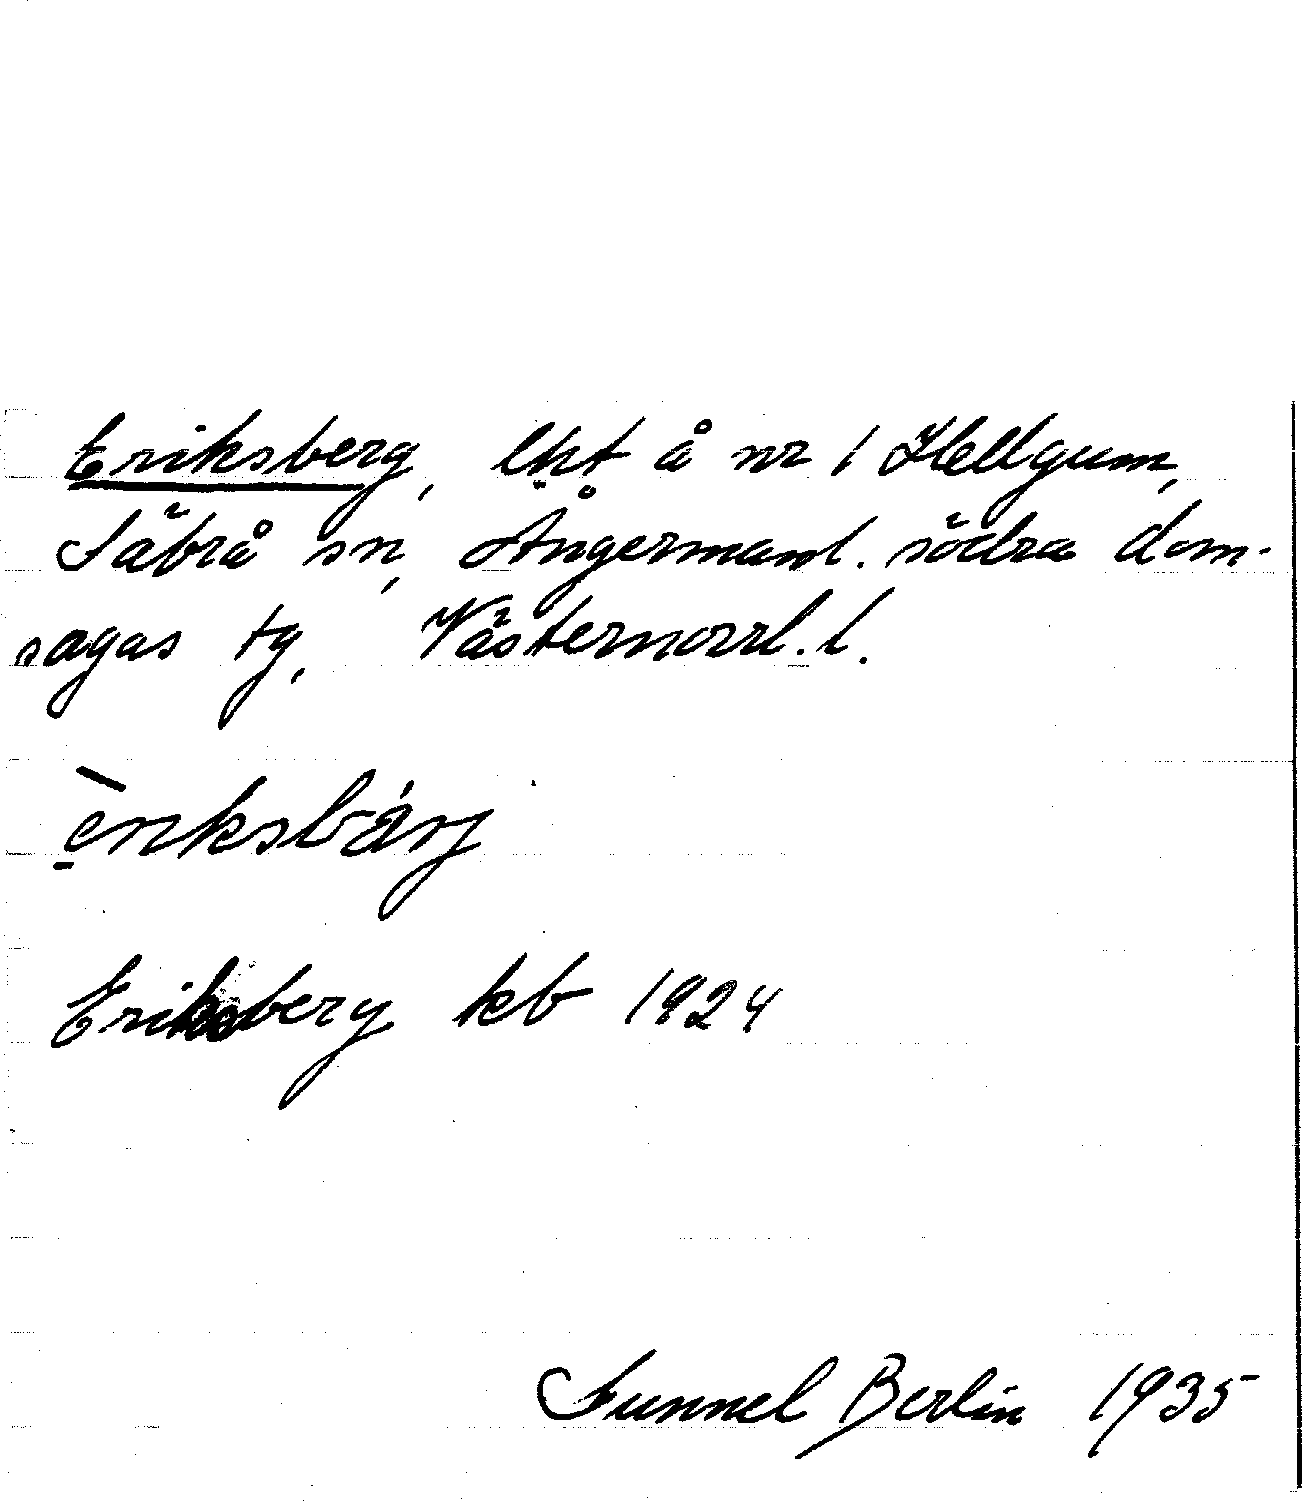 Eriksberg, lht å nr 1 Hellgum,
Säbrå sn, Ångermanl. södra dom-
sagas tg, Västernorrl. l.
èriksbárj
Eriksberg kb 1924
Sunnel Berlin 1935